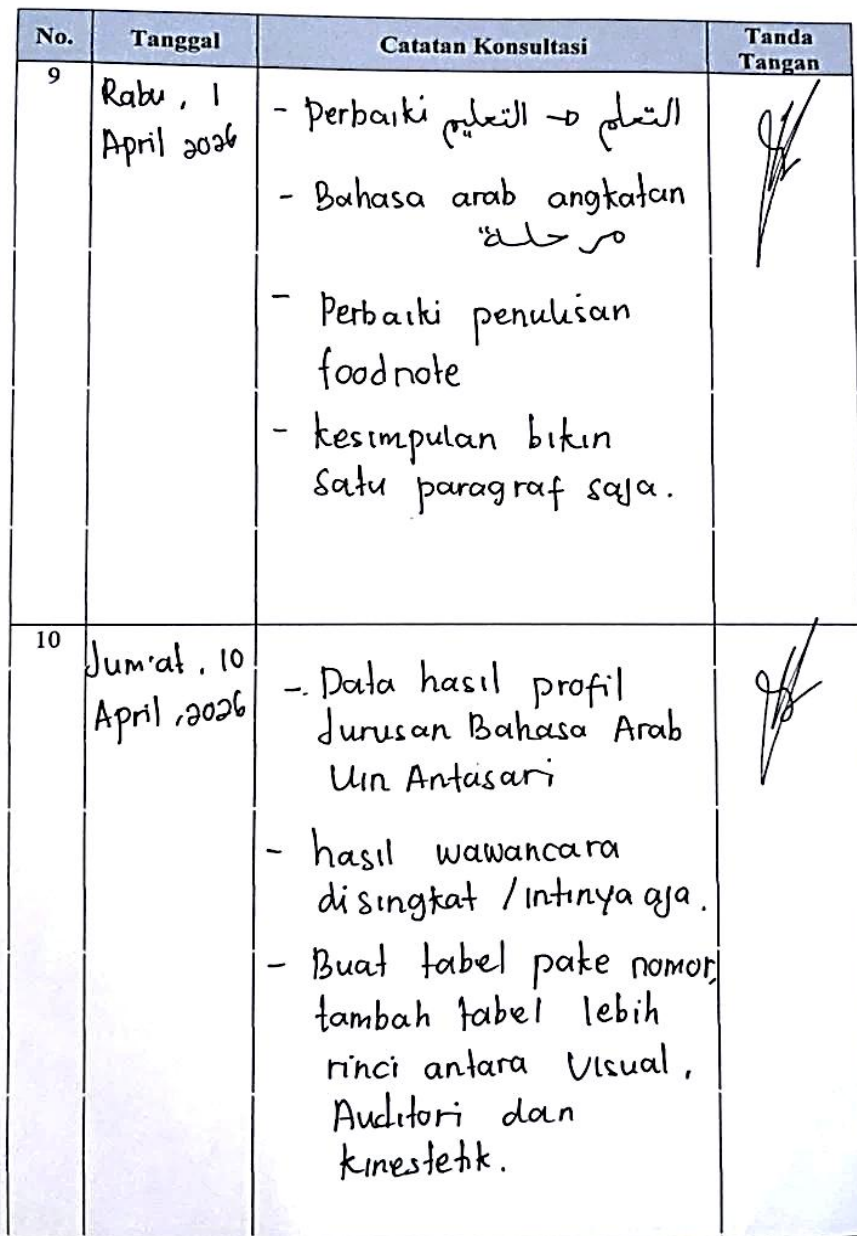 No. Tanggal Catatan Konsultasi Tanda
Tangan
9
Rabu, 1
April 2026
- Perbaiki التعليم → التعلم
- Bahasa arab angkatan
مرحلة
- Perbaiki penulisan
foodnote
- kesimpulan bikin
satu paragraf saja.
10
Jum'at, 10
April, 2026
- Data hasil profil
Jurusan Bahasa Arab
Uin Antasari
- hasil wawancara
disingkat / intinya aja.
- Buat tabel pake nomor,
tambah tabel lebih
rinci antara Visual,
Auditori dan
kinestetik.